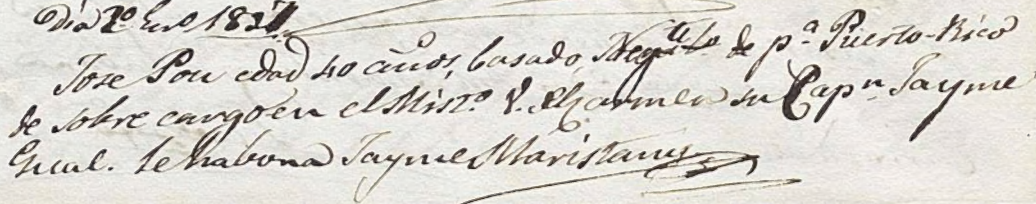 Dia 2º Enº 1821
Jose Pou edad 40 años, Casado, Negte lo de pª Puerto-Rico
de sobre cargo en el Mistº V. del Carmen su Capn Jayme
Gual. le habona Jayme Maristany